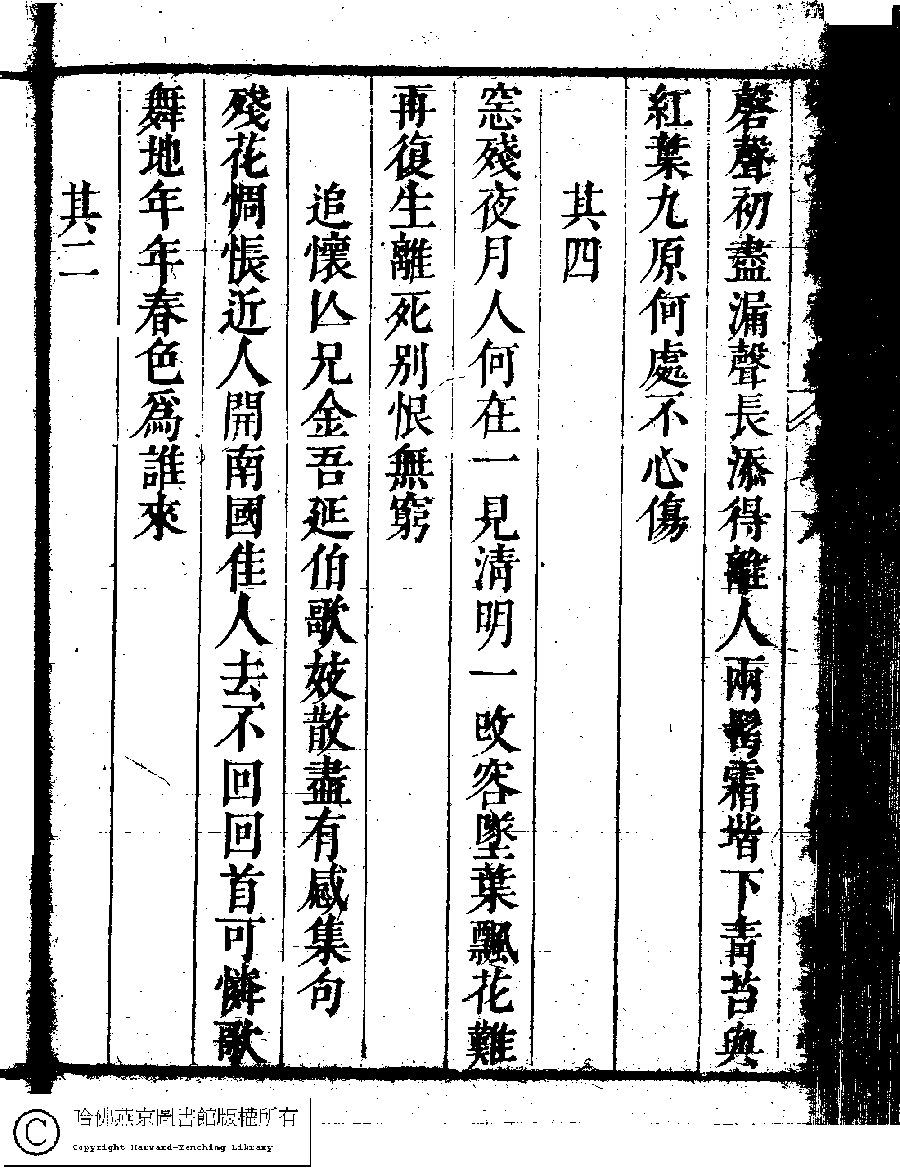 磬聲初盡漏聲長添得離人兩鬂霜堦下靑苔與
紅葉九原何處不心傷
其四
窓殘夜月人何在一見淸明一改容墜葉飄花難
再復生離死別恨無窮
追懷亾兄金吾延伯歌妓散盡有感集句
殘花惆悵近人開南國佳人去不回回首可憐歌
舞地年年春色爲誰來
其二
哈佛燕京圖書館版權所有
Copyright Harvard-Yenching Library